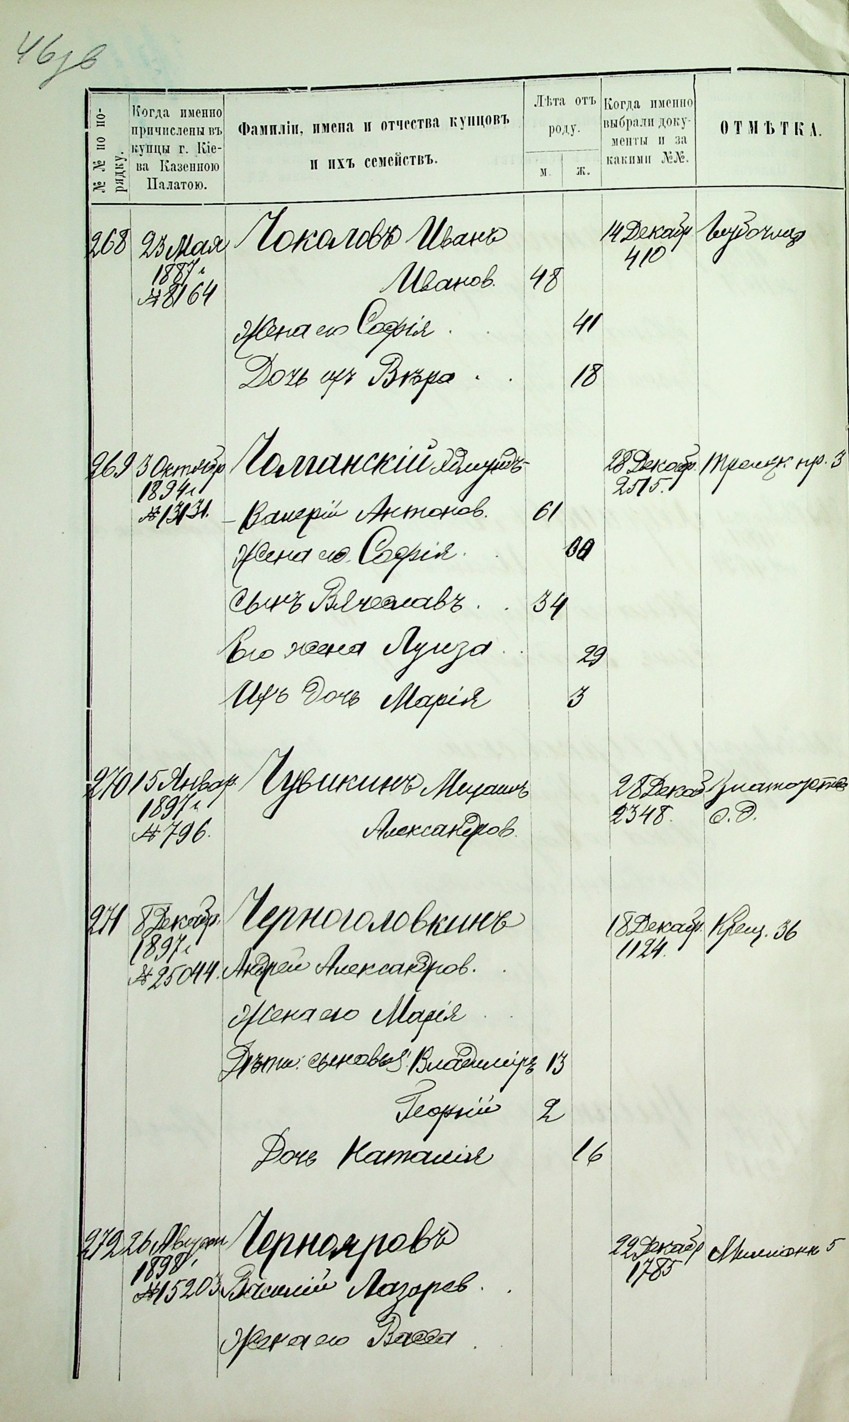 46
№ № по по-
рядку.
Когда именно
причислены въ
купцы г. Кіе-
ва Казенною
Палатою.
Фамиліи, имена и отчества купцовъ
и ихъ семействъ.
Лѣта отъ
роду.
м. ж.
Когда именно
выбрали доку-
менты и за
какими №№.
ОТМѢТКА.
268 23 Мая Чоколовъ Иванъ 14 Декабр
1887 г Иванов. 48 410
№ 8164
Жена его Софія 41
Дочь ихъ Вѣра 18
269 3 Октябр Чолганскій Эдмундъ- 28 Декабр. Троицк пр. 3
1894 г 2515.
№ 13131. -Валерій Антонов. 61
Жена его Софія.
сынъ Вячеславъ. 34
Его жена Луиза 29
Ихъ дочь Марія 3
270 15 Январ. Чувикинъ Михаилъ 28 Декаб
1897 г Александров. 2348.
№ 796.
271 8 Декабр. Черноголовкинъ 18 Декабр. Крещ. 36
1897 г 1124.
№ 25044. Андрей Александров.
Жена его Марія
Дѣти: сыновья: Владиміръ 13
Георгій 2
Дочь Наталія 16
272 26 Август Чернояровъ 22 Декабр Милліонн 5
1898 г 1785
№ 15203 Василій Лазарев.
Жена его Васса